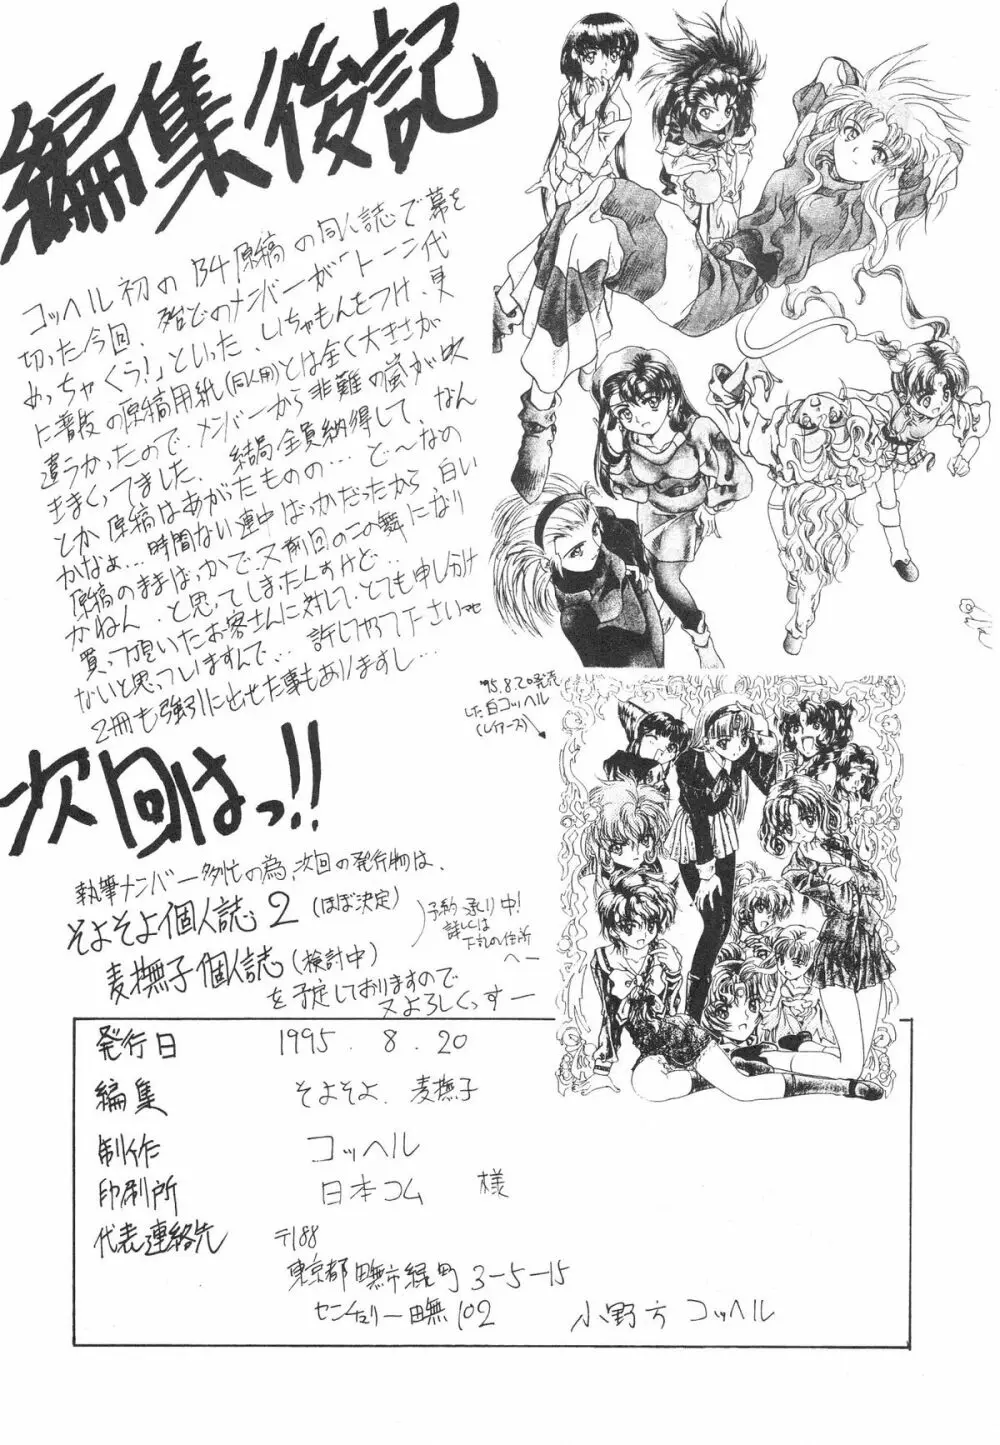 編集後記
コッヘル初のB4原稿の同人誌で幕を
切った今回、殆どのメンバーが「トーン代
めっちゃくう!」といった、いちゃもんをつけ、更
に普段の原稿用紙(同人用)とは全く大きさが
違うかったので、メンバーから非難の嵐が吹
きまくってました、結局全員納得して、なん
とか原稿はあがったものの…ど〜なの
かなぁ…時間ない連中ばっかだったから白い
原稿のままばっかで、又前回の二の舞になり
かねん、と思ってしまったんすけど…
買って頂いたお客さんに対して、とても申し分け
ないと思ってしますんで…許してやって下さいませ
2冊も強引に出せた事もありますし…
'95.8.20発売
した白コッヘル
(レイアース)
次回はっ!!
執筆メンバー多忙の為、次回の発行物は、
そよそよ個人誌2(ほぼ決定)
麦撫子個人誌(検討中)
を予定しておりますので
又よろしくっすー
予約承り中!
詳しくは
下記の住所
へー
発行日 1995.8.20
編集 そよそよ、麦撫子
制作 コッヘル
印刷所 日本コム 様
代表連絡先 〒188
東京都田無市緑町3-5-15
センチュリー田無102 小野方 コッヘル